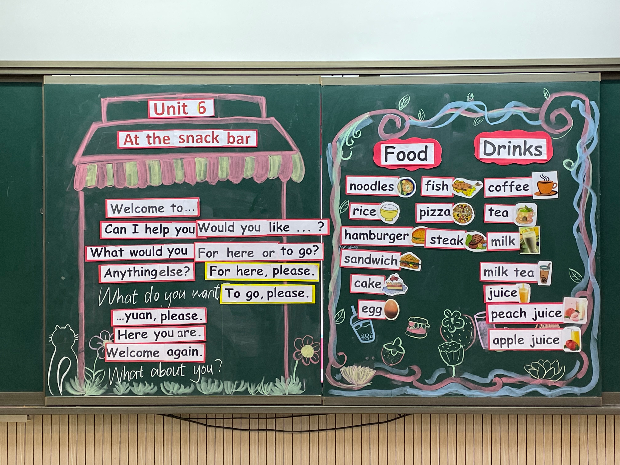 Unit 6
At the snack bar
Welcome to...
Can I help you Would you like ... ?
What would you For here or to go?
Anything else? For here, please.
What do you want To go, please.
...yuan, please.
Here you are.
Welcome again.
What about you?
Food
noodles fish
rice pizza
hamburger steak
sandwich
cake
egg
Drinks
coffee
tea
milk
milk tea
juice
peach juice
apple juice